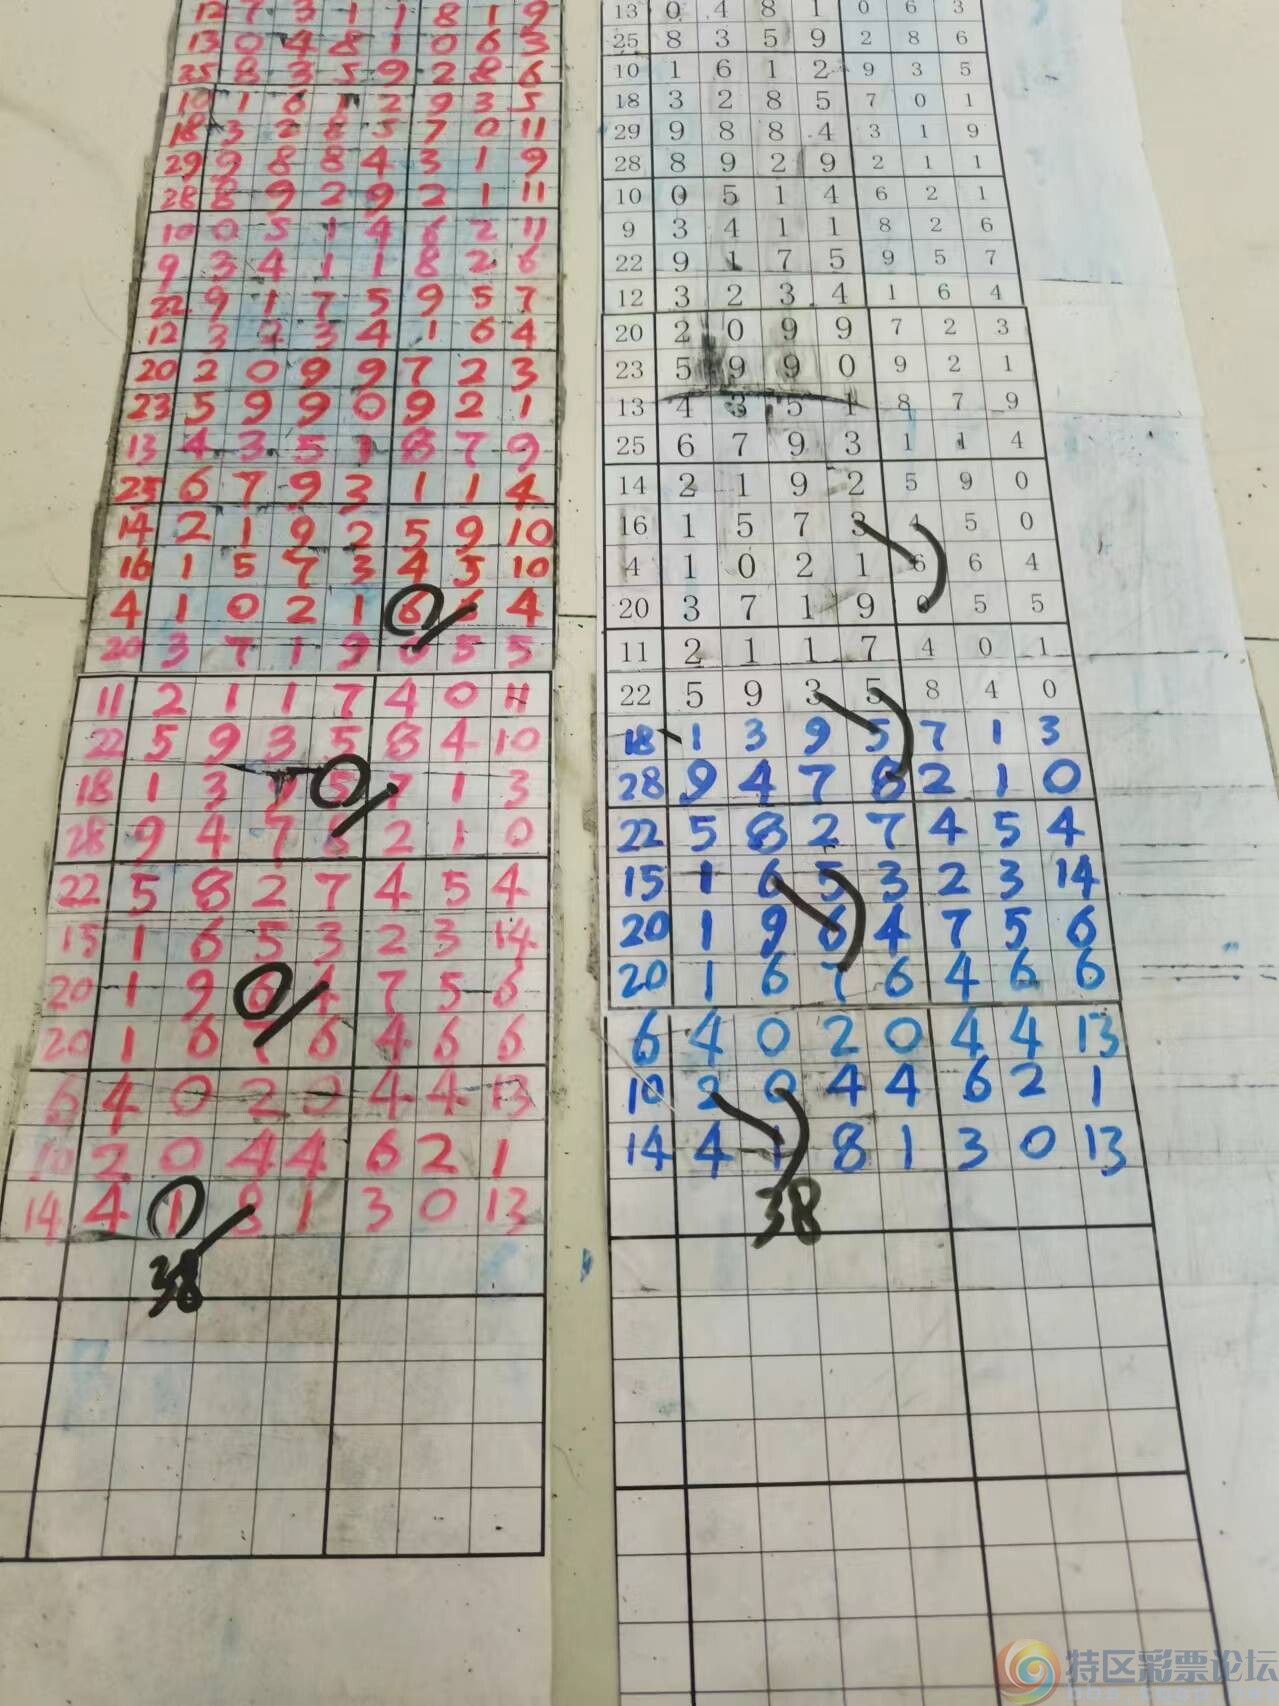 12 7 3 1 1 8 1 9
13 0 4 8 1 0 6 3
25 8 3 5 9 2 8 6
10 1 6 1 2 9 3 5
18 3 2 8 5 7 0 11
29 9 8 8 4 3 1 9
28 8 9 2 9 2 1 11
10 0 5 1 4 6 2 11
9 3 4 1 1 8 2 6
22 9 1 7 5 9 5 7
12 3 2 3 4 1 6 4
20 2 0 9 9 7 2 3
23 5 9 9 0 9 2 1
13 4 3 5 1 8 7 9
25 6 7 9 3 1 1 4
14 2 1 9 2 5 9 10
16 1 5 7 3 4 5 10
4 1 0 2 1 6 6 4
20 3 7 1 9 0 5 5
11 2 1 1 7 4 0 11
22 5 9 3 5 8 4 10
18 1 3 9 5 7 1 3
28 9 4 7 8 2 1 0
22 5 8 2 7 4 5 4
15 1 6 5 3 2 3 14
20 1 9 6 4 7 5 6
20 1 6 7 6 4 6 6
6 4 0 2 0 4 4 13
10 2 0 4 4 6 2 1
14 4 1 8 1 3 0 13
38
13 0 4 8 1 0 6 3
25 8 3 5 9 2 8 6
10 1 6 1 2 9 3 5
18 3 2 8 5 7 0 1
29 9 8 8 4 3 1 9
28 8 9 2 9 2 1 1
10 0 5 1 4 6 2 1
9 3 4 1 1 8 2 6
22 9 1 7 5 9 5 7
12 3 2 3 4 1 6 4
20 2 0 9 9 7 2 3
23 5 9 9 0 9 2 1
13 4 3 5 1 8 7 9
25 6 7 9 3 1 1 4
14 2 1 9 2 5 9 0
16 1 5 7 3 4 5 0
4 1 0 2 1 6 6 4
20 3 7 1 9 0 5 5
11 2 1 1 7 4 0 1
22 5 9 3 5 8 4 0
18 1 3 9 5 7 1 3
28 9 4 7 8 2 1 0
22 5 8 2 7 4 5 4
15 1 6 5 3 2 3 14
20 1 9 6 4 7 5 6
20 1 6 7 6 4 6 6
6 4 0 2 0 4 4 13
10 2 0 4 4 6 2 1
14 4 1 8 1 3 0 13
38
特区彩票论坛